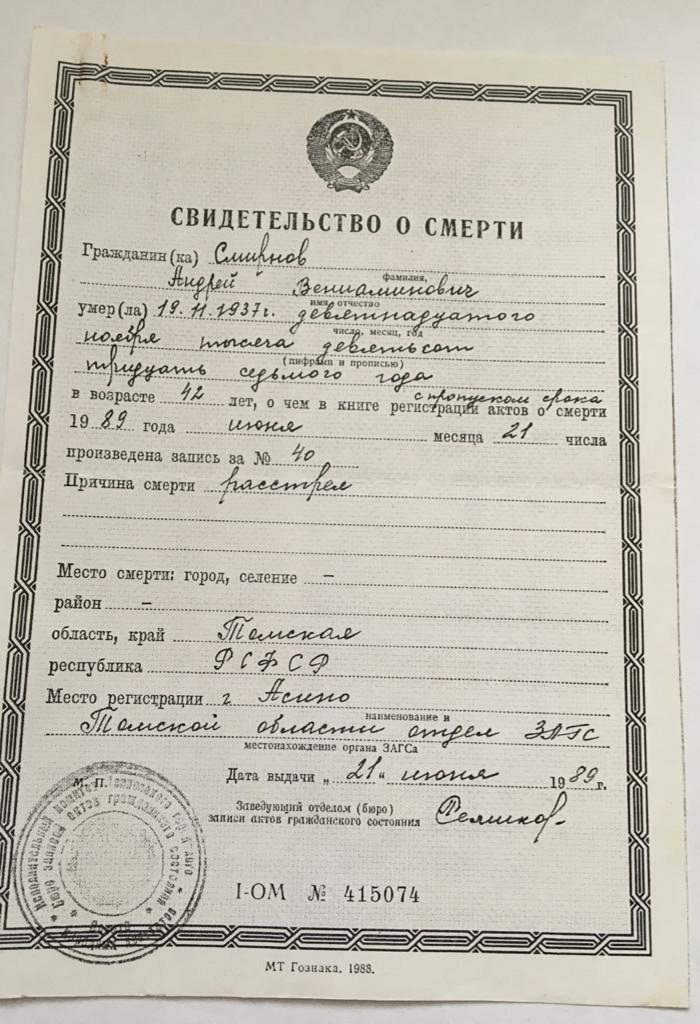 СВИДЕТЕЛЬСТВО О СМЕРТИ
Гражданин(ка) Смирнов
фамилия,
Андрей Вениаминович
имя, отчество
умер(ла) 19.11.1937г. девятнадцатого
число, месяц, год
ноября тысяча девятьсот
(цифрами и прописью)
тридцать седьмого года
с пропуском срока
в возрасте 42 лет, о чем в книге регистрации актов о смерти
1989 года июня месяца 21 числа
произведена запись за № 40
Причина смерти расстрел
Место смерти: город, селение –
район –
область, край Томская
республика РСФСР
Место регистрации г Асино
наименование и
Томской области отдел ЗАГС
местонахождение органа ЗАГСа
М. П.
Дата выдачи „21“ июня 1989 г.
Заведующий отделом (бюро)
записи актов гражданского состояния
I-ОМ № 415074
МТ Гознака. 1988.